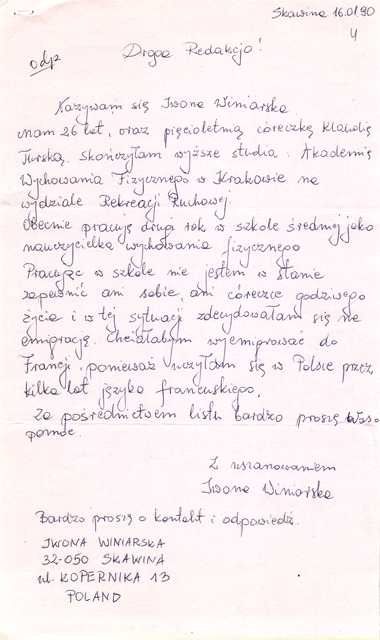 Skawina 16.01.90
4
odp
Droga Redakcjo!
Nazywam się Iwona Winiarska
mam 26 lat, oraz pięcioletnią córeczkę Klaudię
Turską. Skończyłam wyższe studia: Akademię
Wychowania Fizycznego w Krakowie na
wydziale Rekreacji Ruchowej.
Obecnie pracuję drugi rok w szkole średniej jako
nauczycielka wychowania fizycznego
Pracując w szkole nie jestem w stanie
zapewnić ani sobie, ani córeczce godziwego
życia i w tej sytuacji zdecydowałam się na
emigrację. Chciałabym wyemigrować do
Francji, ponieważ uczyłam się w Polsce przez
kilka lat języka francuskiego.
Za pośrednictwem listu bardzo proszę Was o
pomoc.
Z uszanowaniem
Iwona Winiarska
Bardzo proszę o kontakt i odpowiedź.
IWONA WINIARSKA
32-050 SKAWINA
ul. KOPERNIKA 13
POLAND